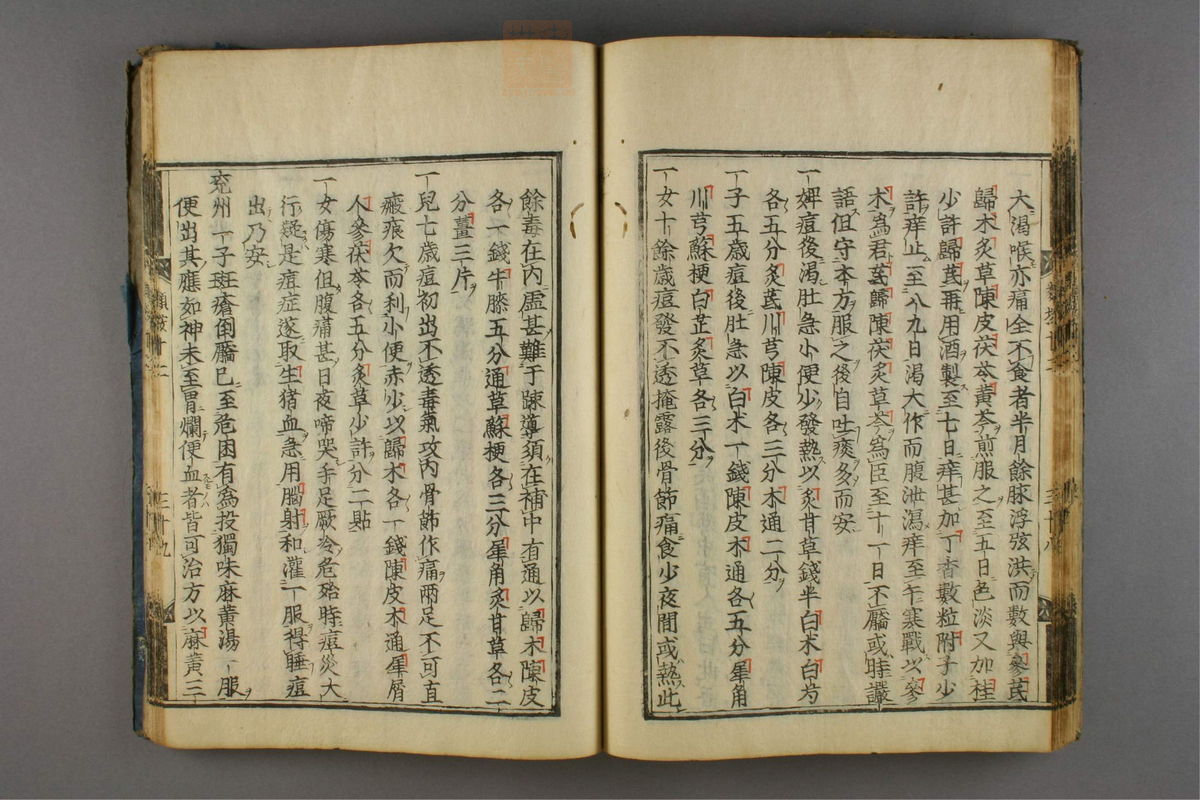 大渴喉亦痛全不食者半月餘脉浮弦洪而數與參芪
歸木炙草陳皮茯苓黃芩煎服之至五日色淡又加桂
少許歸芪再用酒製至七日痒甚加丁香數粒附子少
許痒止至八九日渴大作而腹泄瀉痒至午寒戰以參
木為君芪歸陳茯炙草芩為臣至十一日不靨或時譫
語但守本方服之後自吐痰多而安
一婢痘後渴肚急小便少發熱以炙甘草錢半白朮白芍
各五分炙芪川芎陳皮各三分木通二分
一子五歲痘後肚急以白朮一錢陳皮木通各五分犀角
川芎蘇梗白芷炙草各三分
一女十餘歲痘發不透掩露後骨節痛食少夜間或熱此
餘毒在內虛甚難于踈導須在補中有通以歸木陳皮
各一錢牛膝五分通草蘇梗各三分犀角炙甘草各二
分薑三片
一兒七歲痘初出不透毒氣攻內骨節作痛兩足不可直
瘢痕欠而利小便赤少以歸木各一錢陳皮木通犀屑
人參茯苓各五分炙草少許分二貼
一女傷寒但腹痛甚日夜啼哭手足厥冷危殆時痘災大
行疑是痘症遂取生猪血急用腦射和灌一服得睡痘
出乃安
兖州一子斑瘡倒靨已至危困有為投獨味麻黃湯一服
便出其應如神未至胃爛便血者皆可治方以麻黃三
三十九